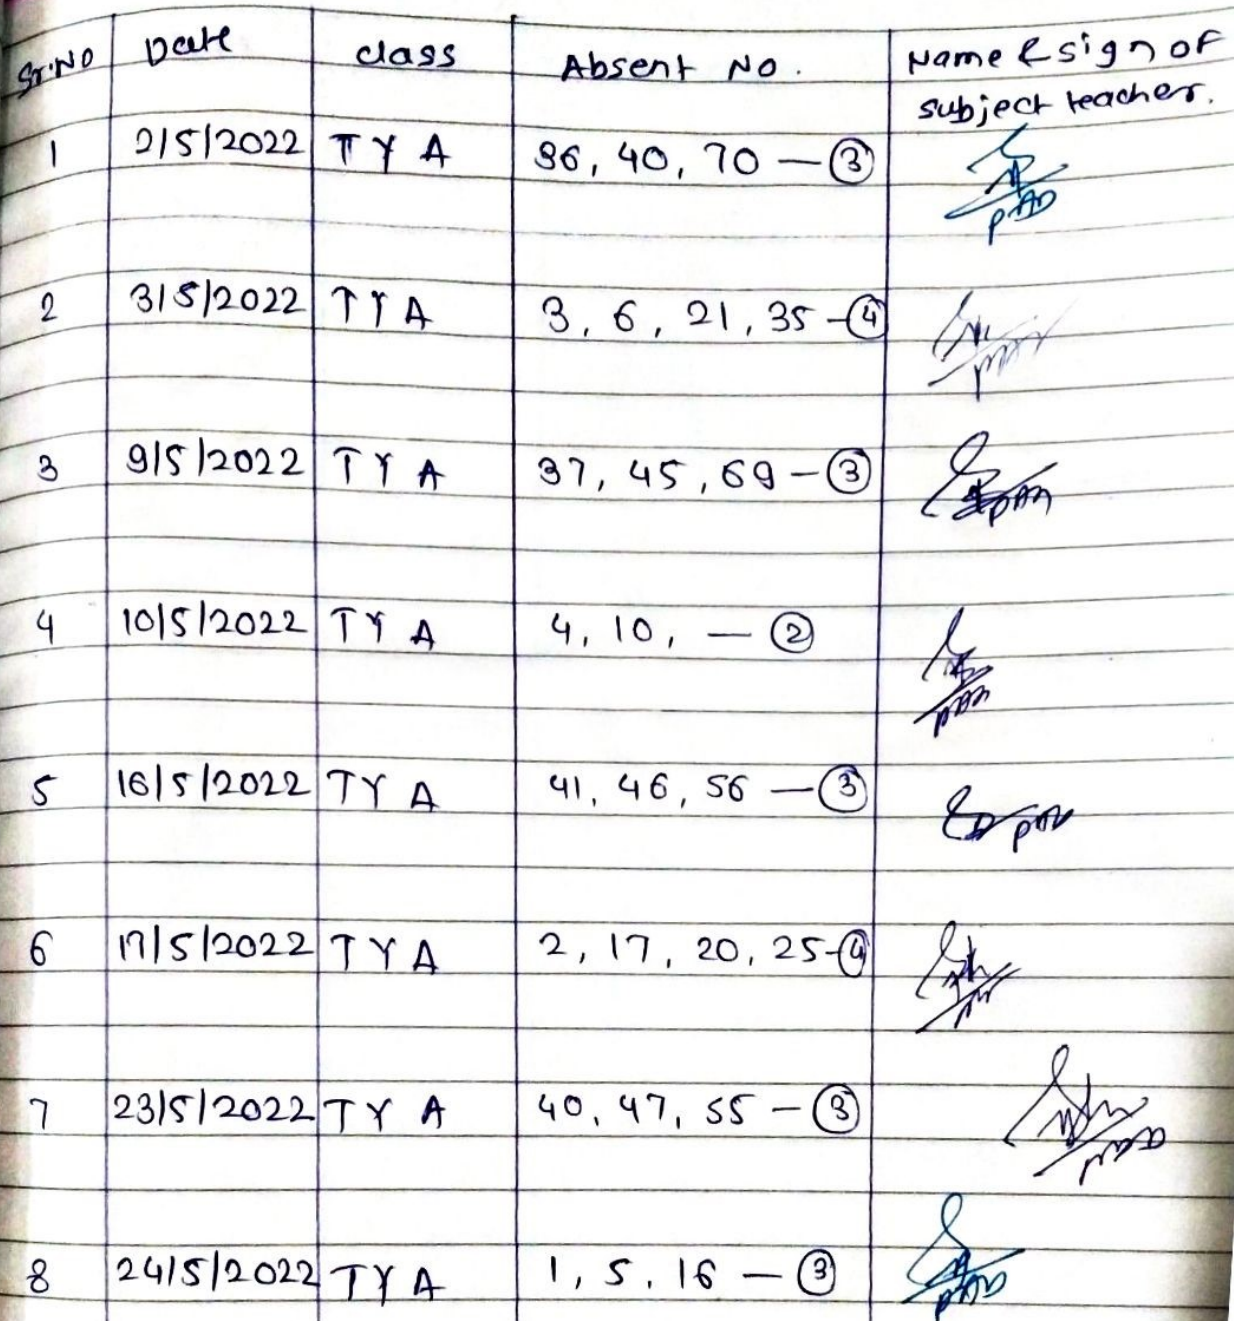 Sr.No Date class Absent No. Name & sign of
subject teacher.
1 2/5/2022 T Y A 36, 40, 70 — ③
2 3/5/2022 T Y A 3, 6, 21, 35 - ④
3 9/5/2022 T Y A 37, 45, 69 - ③
4 10/5/2022 T Y A 4, 10, — ②
5 16/5/2022 T Y A 41, 46, 56 — ③
6 17/5/2022 T Y A 2, 17, 20, 25 - ④
7 23/5/2022 T Y A 40, 47, 55 - ③
8 24/5/2022 T Y A 1, 5, 16 — ③